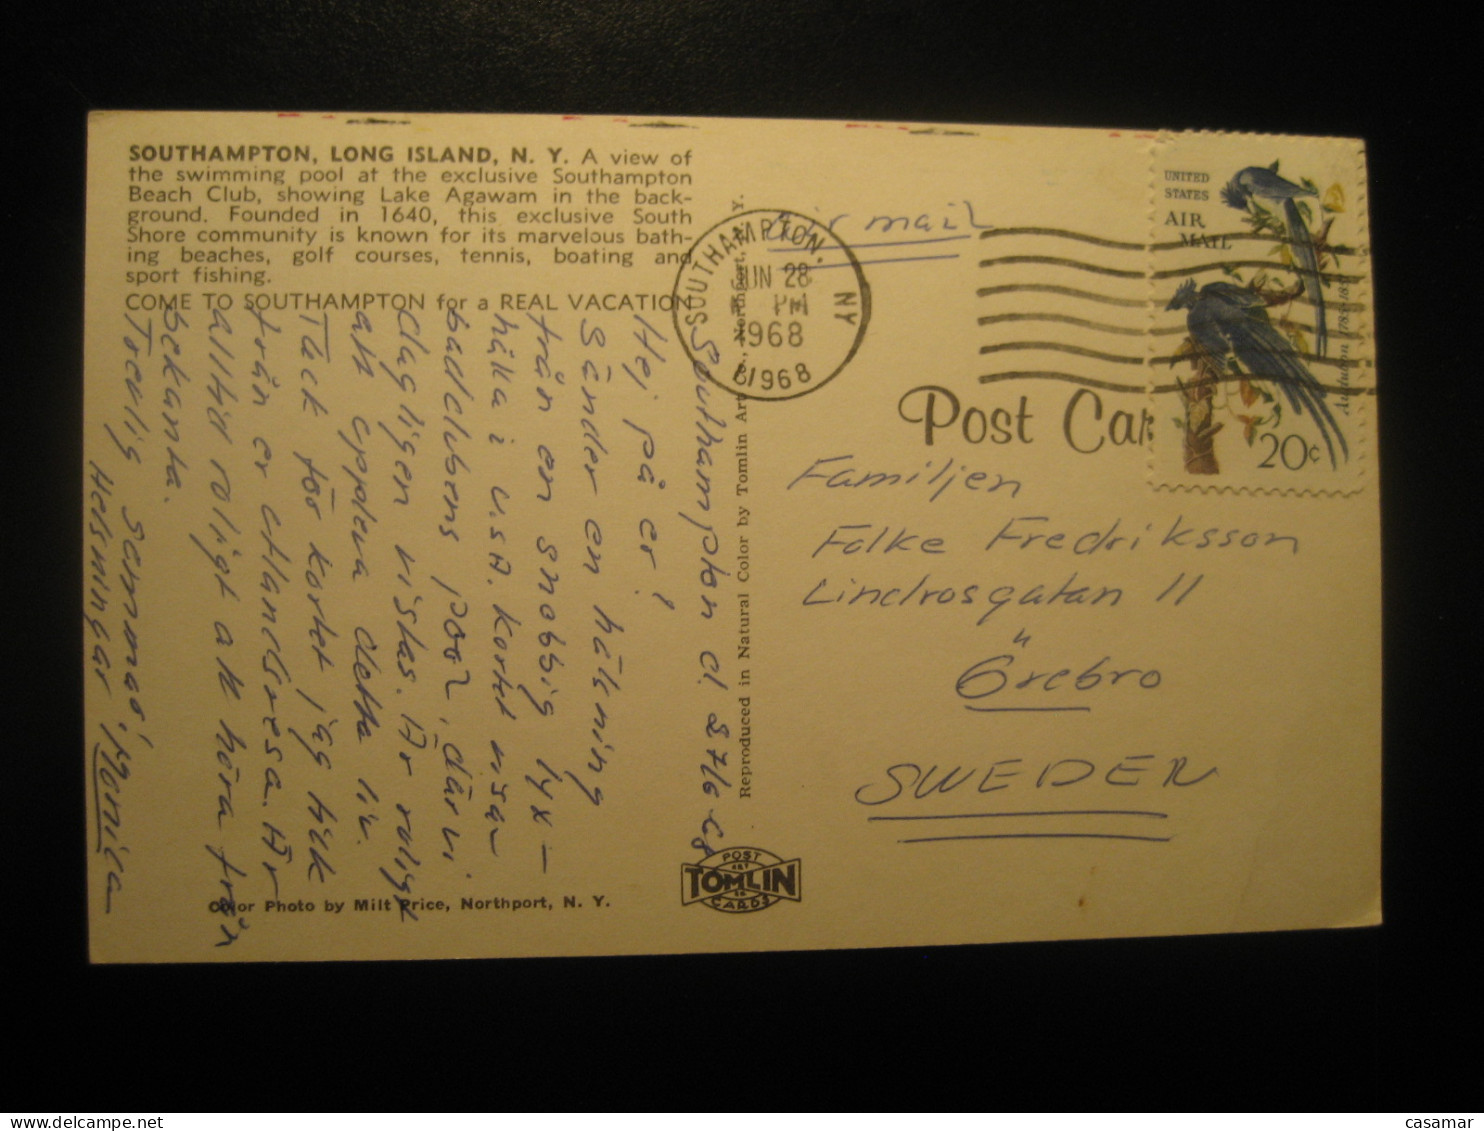 SOUTHAMPTON, LONG ISLAND, N. Y. A view of
the swimming pool at the exclusive Southampton
Beach Club, showing Lake Agawam in the back-
ground. Founded in 1640, this exclusive South
Shore community is known for its marvelous bath-
ing beaches, golf courses, tennis, boating and
sport fishing.
COME TO SOUTHAMPTON for a REAL VACATION
Southampton d. 27/6 68
Hej på er!
Sänder en hälsning
från en snobbig lyx-
håla i U.S.A. Kortet visa-
badclubens pool, där vi
dagligen vistas. Är roligt
att uppleva detta liv.
Tack för kortet jag fick
från er Ålandsresa. Är
alltid roligt att höra från
bekanta.
Trevlig sommar!
Hälsningar Monica
Color Photo by Milt Price, Northport, N. Y.
Reproduced in Natural Color by Tomlin Art Co., Northport, N. Y.
POST
ART
TOMLIN
CO
CARDS
SOUTHAMPTON, NY
JUN 28
PM
1968
1968
Air mail
UNITED
STATES
AIR
MAIL
Audubon 1785-1851
20c
Post Car
Familjen
Folke Fredriksson
Lindrosgatan 11
Örebro
SWEDEN
www.delcampe.net
casamar